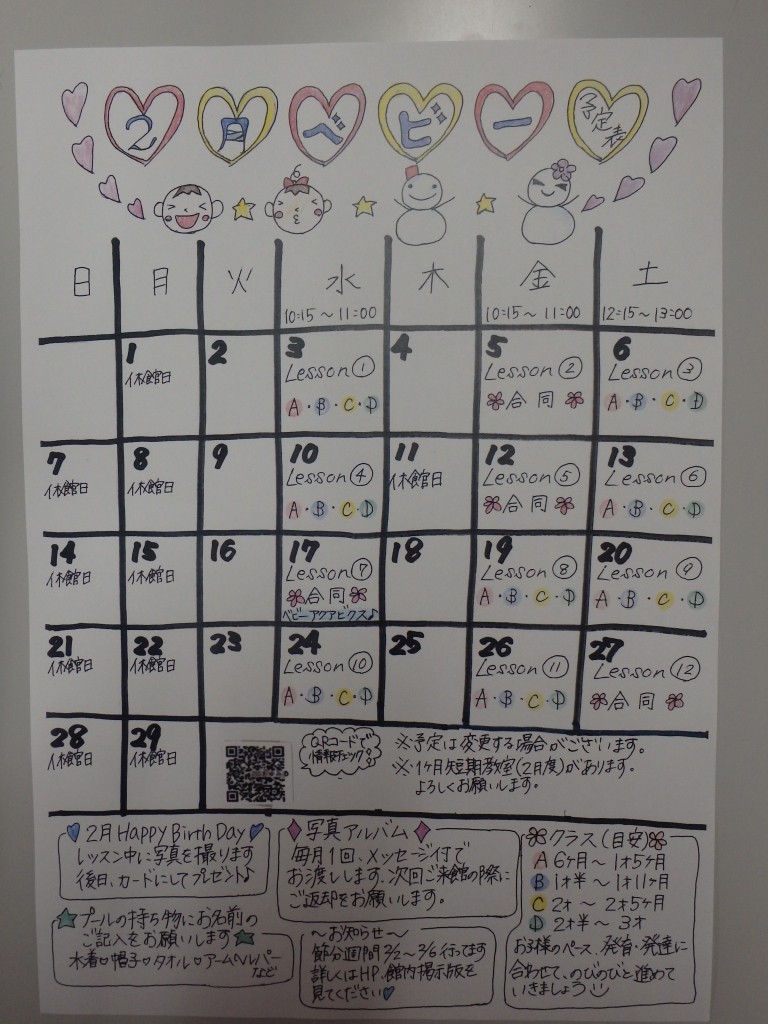 2月ベビー予定表
日 月 火 水 木 金 土
10:15～11:00 10:15～11:00 12:15～13:00
1 2 3 4 5 6
休館日 Lesson① Lesson② Lesson③
A・B・C・D 合同 A・B・C・D
7 8 9 10 11 12 13
休館日 休館日 Lesson④ 休館日 Lesson⑤ Lesson⑥
A・B・C・D 合同 A・B・C・D
14 15 16 17 18 19 20
休館日 休館日 Lesson⑦ Lesson⑧ Lesson⑨
合同 A・B・C・D A・B・C・D
ベビーアクアビクス♪
21 22 23 24 25 26 27
休館日 休館日 Lesson⑩ Lesson⑪ Lesson⑫
A・B・C・D A・B・C・D 合同
28 29
休館日 休館日
QRコードで
情報チェック
※予定は変更する場合がございます。
※1ヶ月短期教室(2月度)があります。
よろしくお願いします。
2月 Happy Birth Day
レッスン中に写真を撮ります
後日、カードにしてプレゼント♪
プールの持ち物にお名前の
ご記入をお願いします
水着♡帽子♡タオル♡アームヘルパー
など
写真アルバム
毎月1回、メッセージ付で
お渡しします。次回ご来館の際に
ご返却をお願いします。
～お知らせ～
節分週間 2/2～2/6 行ってます
詳しくはHP、館内掲示版を
見てください♡
クラス(目安)
A 6ヶ月～1才5ヶ月
B 1才半～1才11ヶ月
C 2才～2才5ヶ月
D 2才半～3才
お子様のペース、発育・発達に
合わせて、のびのびと進めて
いきましょう